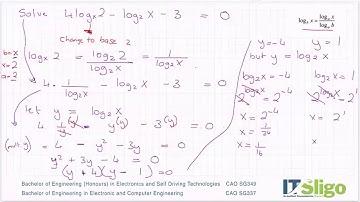 Solve 4log_x 2 - log_2 x - 3 = 0
Change to base 2
b=x
x=2
a=2
log_x 2 = log_2 2 / log_2 x = 1 / log_2 x
4 · 1 / log_2 x - log_2 x - 3 = 0
let y = log_2 x
4 1/y (y) - y(y) - 3(y) = 0
(mult. y) = 4 - y² - 3y = 0
y² + 3y - 4 = 0
(y + 4)(y - 1) = 0
log_b x = log_a x / log_a b
y = -4 y = 1
but y = log_2 x
log_2 x = -4 log_2 x = 1
2^log_2 x = 2^-4 2^log_2 x = 2^1
x = 2^-4 x = 2^1
x = 1/2^4
x = 1/16 x
IT Sligo
Bachelor of Engineering (Honours) in Electronics and Self Driving Technologies CAO SG349
Bachelor of Engineering in Electronic and Computer Engineering CAO SG337